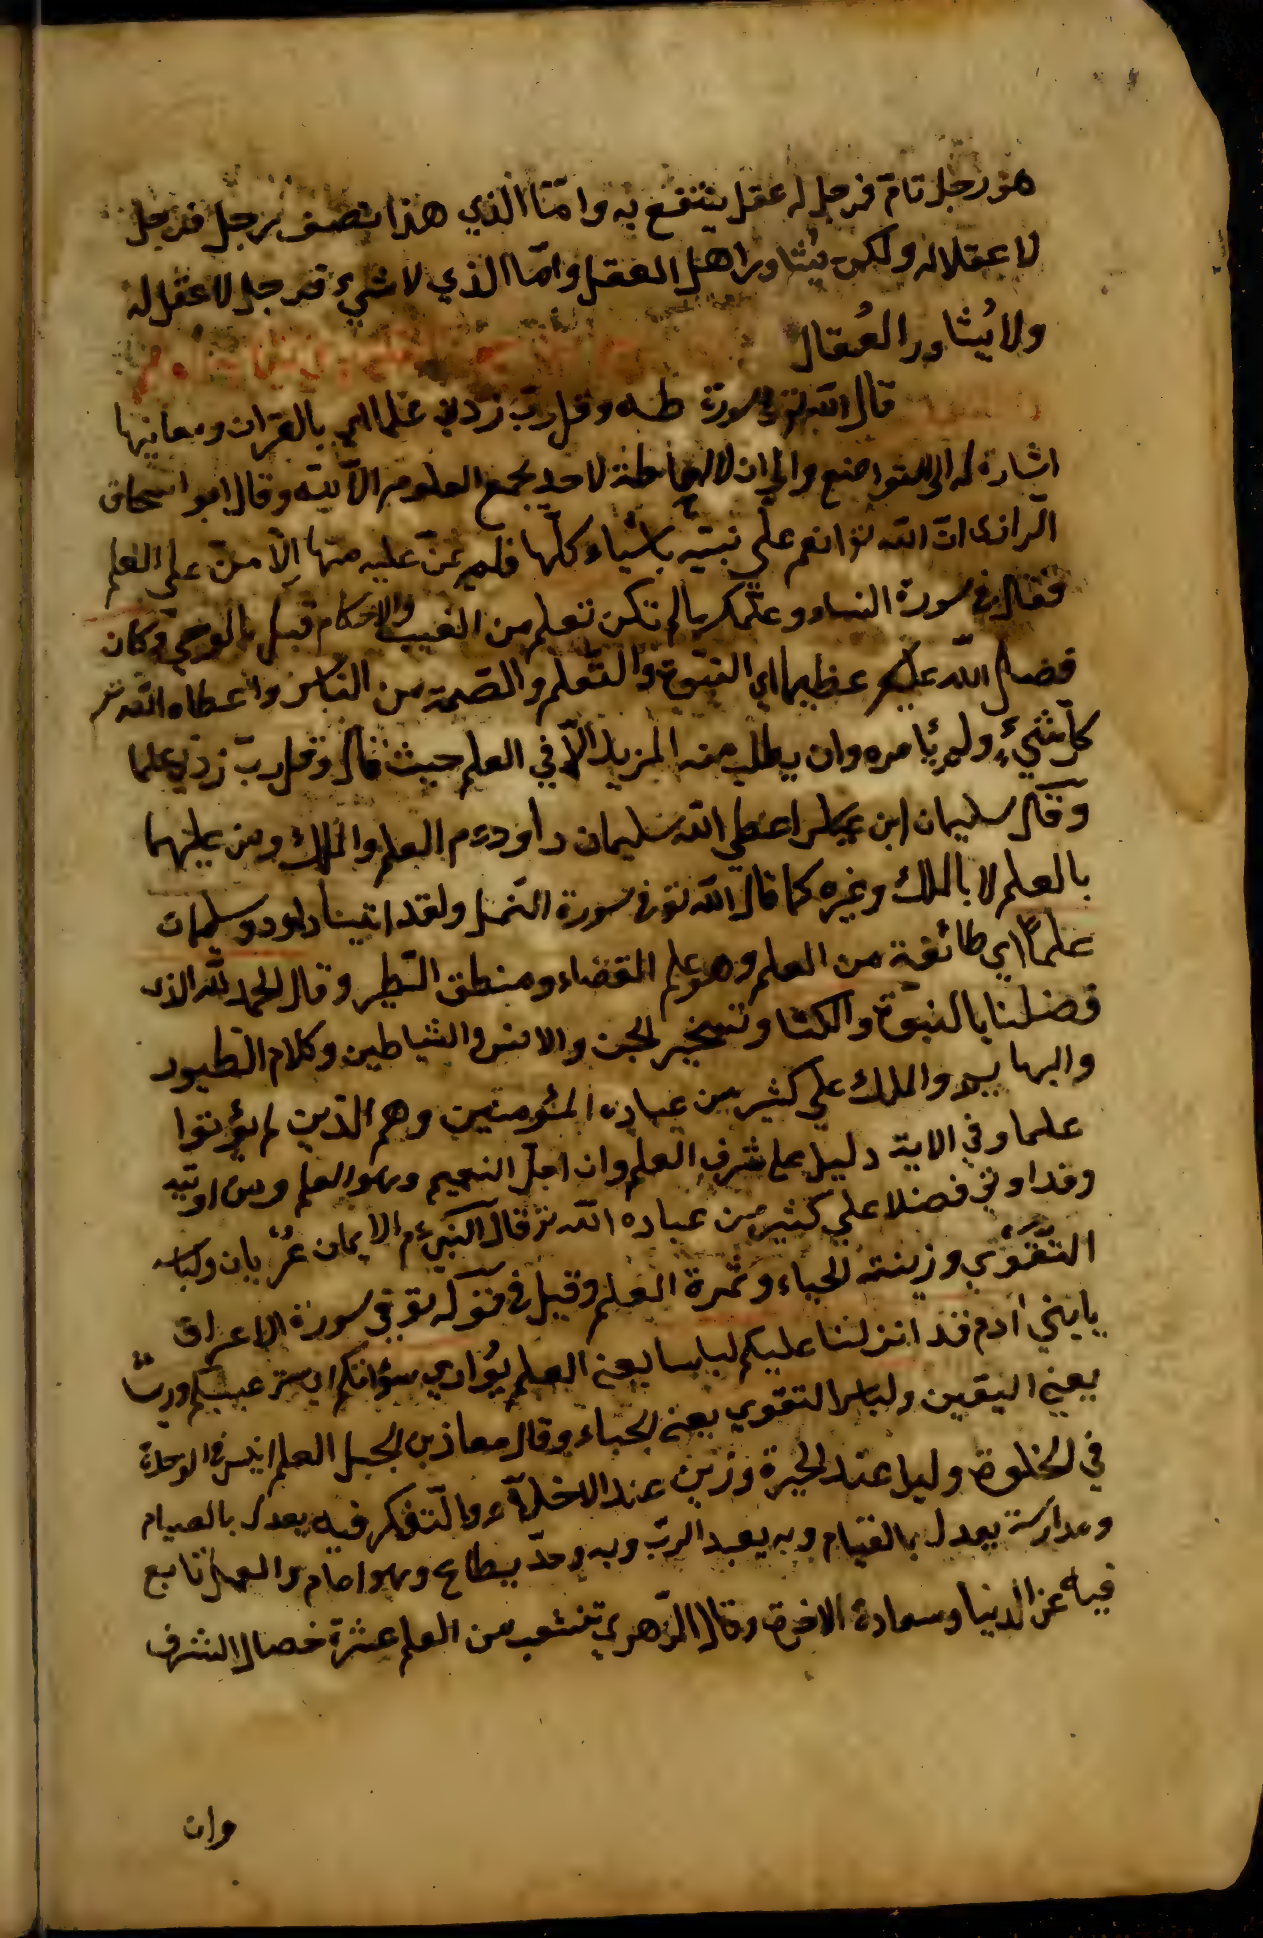 هو رجل تام فرجل له عقل ينتفع به وامّا الذي هذا نصف رجل فرجل
لا عقلاله ولكن يُشاور اهل العقل وامّا الذي لا شيء فرجل لا عقل له
ولا يُشاور العُقال
قال الله تع في سورة طه وقل رب زدني علما اي بالقران ومعانيها
اشارة له الى التواضع والى ان لا احاطة لاحد بجمع العلوم الآية وقال ابو اسحاق
الرازى انّ الله تع انعم على نبيّه باشياء كلّها فلم يمنّ عليه منها إلّا منّ على العلم
فقال في سورة النساء وعلّمك مالم تكن تعلم من الغيب والاحكام قبل بالوحي وكان
فضل الله عليك عظيما اي النبوة والتّعلم والعصمة من الناس واعطاه الله تع
كلّ شيءٍ ولم يأمره وان يطلب منه المزيد الّا في العلم حيث قال وقل ربّ زدني علما
وقال سليمان ابن اعطى الله سليمان داودعم العلم والملك ومن عليهما
بالعلم لا بالملك وغيره كما قال الله تع في سورة النمل ولقد اتينا داود وسليمان
علماً اي طائفة من العلم وهو علم القضاء ومنطق الطير وقال الحمد لله الذى
فضلنا بالنبوة والكتا وتسخير الجن والانس والشياطين وكلام الطيور
والبهايم والملك علي كثير من عباده المؤمنين وهم الذين لم يؤتوا
علما وفي الاية دليل على شرف العلم وان اجلّ النعيم وهو العلم ومن اوتيه
وقد اوتي فضلا علي كثير من عباده الله تع قال النبيءم الايمان عُريان ولباسه
التقوي وزينته الحياء وثمرة العلم وقيل في قوله تع في سورة الاعراف
يابني ادم قد انزلنا عليكم لباسا يعنى العلم يُوارى سوْاتكم اي يستر عيبكم وريشاً
يعني اليقين ولباس التقوي يعنى الحياء وقال معاذ بن الجبل العلم انيس في الوحدة
في الخلوة وليل عند الحيرة وزين عند الاخلّاء والتفكر فيه يعدل بالصيام
ومدارسته يعدل بالقيام وبه يعبد الربّ وبه وحدّ يطاع وهو امام والعمل تابع
فيه عز الدنيا وسعادة الاخرة وقال الزّهري تنشعب من العلم عشرة خصال الشرف
وان